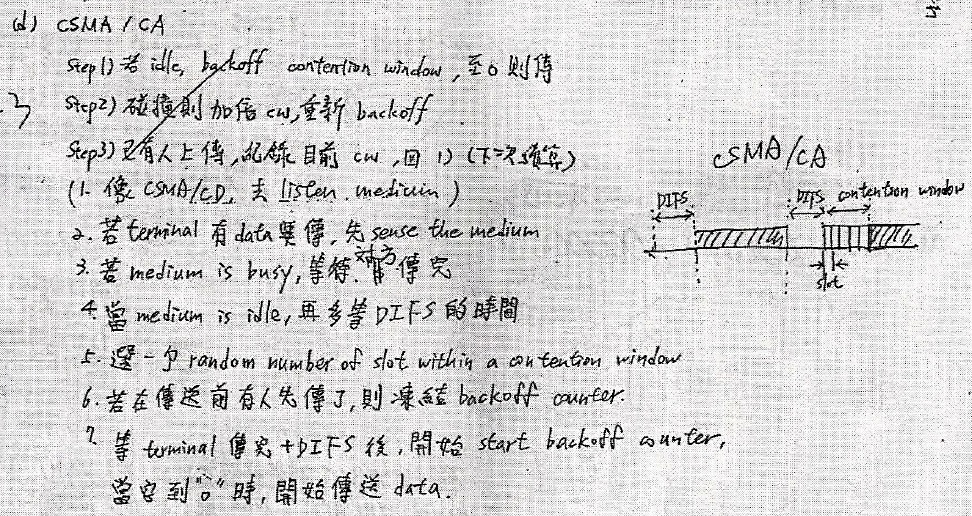 (d) CSMA / CA
Step1) 若 idle, backoff contention window, 至 0 則傳
Step2) 碰撞則加倍 cw, 重新 backoff
Step3) 有人上傳, 紀錄目前 cw, 回 1) (下次續算)
(1. 像 CSMA/CD, 去 listen medium)
2. 若 terminal 有 data 要傳, 先 sense the medium
3. 若 medium is busy, 等待對方傳完
4. 當 medium is idle, 再多等 DIFS 的時間
5. 選一個 random number of slot within a contention window
6. 若在傳送前有人先傳了, 則凍結 backoff counter.
7. 等 terminal 傳完 + DIFS 後, 開始 start backoff counter,
當 到 "0" 時, 開始傳送 data.
CSMA/CA
DIFS DIFS contention window
slot